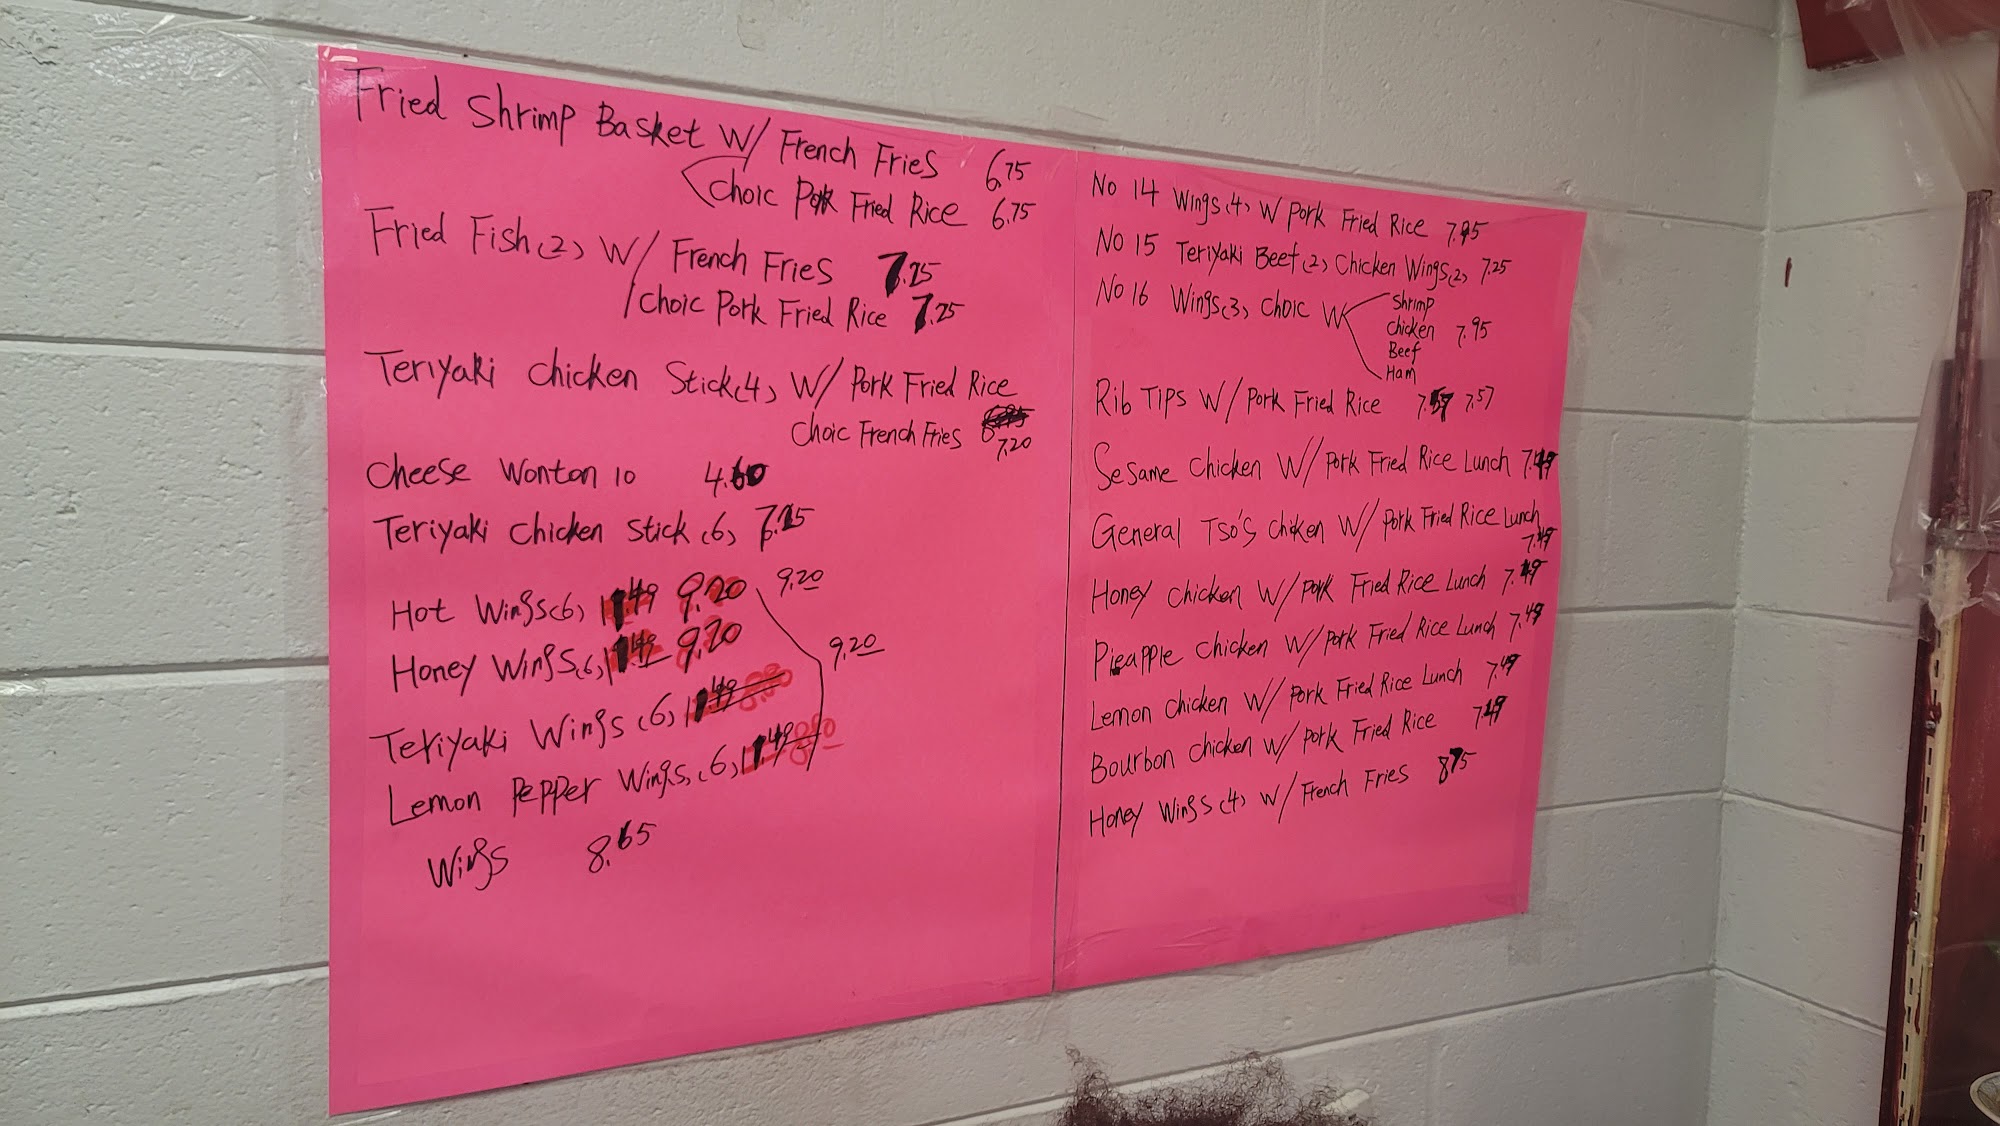 Fried Shrimp Basket W/ French Fries 6.75
Choic Pork Fried Rice 6.75
Fried Fish (2) W/ French Fries 7.25
Choic Pork Fried Rice 7.25
Teriyaki Chicken Stick (4) W/ Pork Fried Rice
Choic French Fries 7.20
Cheese Wonton 10 4.60
Teriyaki Chicken Stick (6)
Hot Wings (6) 11.49 9.20 9.20
Honey Wings (6) 11.49 9.20
9.20
Teriyaki Wings (6) 11.49
Lemon Pepper Wings (6) 11.49
Wings 8.65
No 14 Wings (4) W Pork Fried Rice 7.95
No 15 Teriyaki Beef (2) Chicken Wings (2) 7.25
No 16 Wings (3) Choic W
Shrimp
Chicken 7.95
Beef
Ham
Rib Tips W/ Pork Fried Rice 7.57
Sesame Chicken W/ Pork Fried Rice Lunch 7.49
General Tso's Chicken W/ Pork Fried Rice Lunch
7.49
Honey Chicken W/ Pork Fried Rice Lunch 7.49
Pieapple Chicken W/ Pork Fried Rice Lunch 7.49
Lemon Chicken W/ Pork Fried Rice Lunch 7.49
Bourbon Chicken W/ Pork Fried Rice 7.49
Honey Wings (4) W/ French Fries 8.75